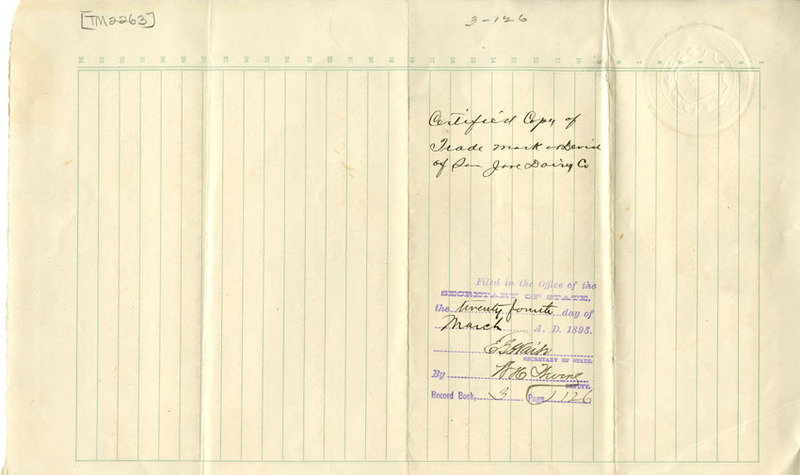 [TM2263]
3-126
Certified Copy of
Trade Mark or Devise
of San Jose Dairy Co
Filed in the Office of the
SECRETARY OF STATE.
the twenty fourth day of
March A. D. 1893.
SECRETARY OF STATE.
By
DEPUTY.
Record Book, 3 Page 126